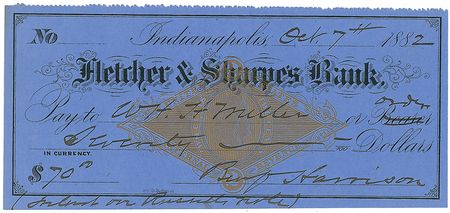 No Indianapolis, Oct 7th 1882
Fletcher & Sharpe's Bank,
Pay to W H H Miller or order Bearer
Seventy /100 Dollars
IN CURRENCY.
$70.00 Benj Harrison
(Interest on Russell note)